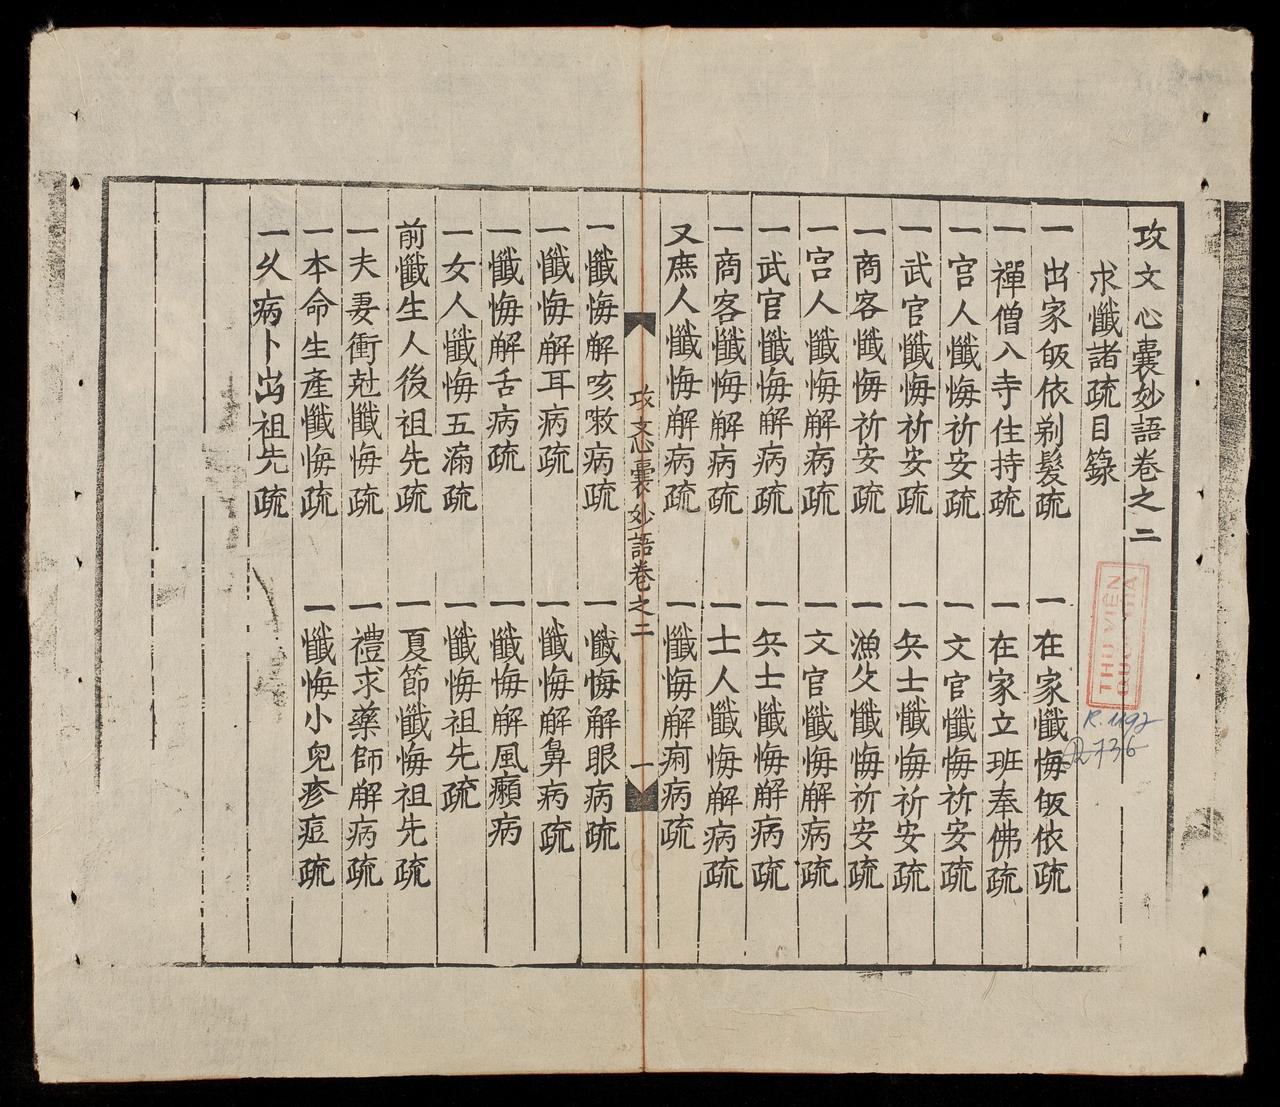 攻文心囊妙語卷之二
求懺諸疏目錄
一出家皈依剃髮疏 一在家懺悔皈依疏
一禪僧入寺住持疏 一在家立班奉佛疏
一宫人懺悔祈安疏 一文官懺悔祈安疏
一武官懺悔祈安疏 一兵士懺悔祈安疏
一商客懺悔祈安疏 一漁父懺悔祈安疏
一宫人懺悔解病疏 一文官懺悔解病疏
一武官懺悔解病疏 一兵士懺悔解病疏
一商客懺悔解病疏 一士人懺悔解病疏
又庶人懺悔解病疏 一懺悔解痢病疏
攻文心囊妙語卷之二 一
一懺悔解咳嗽病疏 一懺悔解眼病疏
一懺悔解耳病疏 一懺悔解鼻病疏
一懺悔解舌病疏 一懺悔解風癩病
一女人懺悔五漏疏 一懺悔祖先疏
前懺生人後祖先疏 一夏節懺悔祖先疏
一夫妻衝尅懺悔疏 一禮求藥師解病疏
一本命生產懺悔疏 一懺悔小兒疹痘疏
一久病卜出祖先疏
THU VIỆN
QUỐC GIA
R.1192
R736